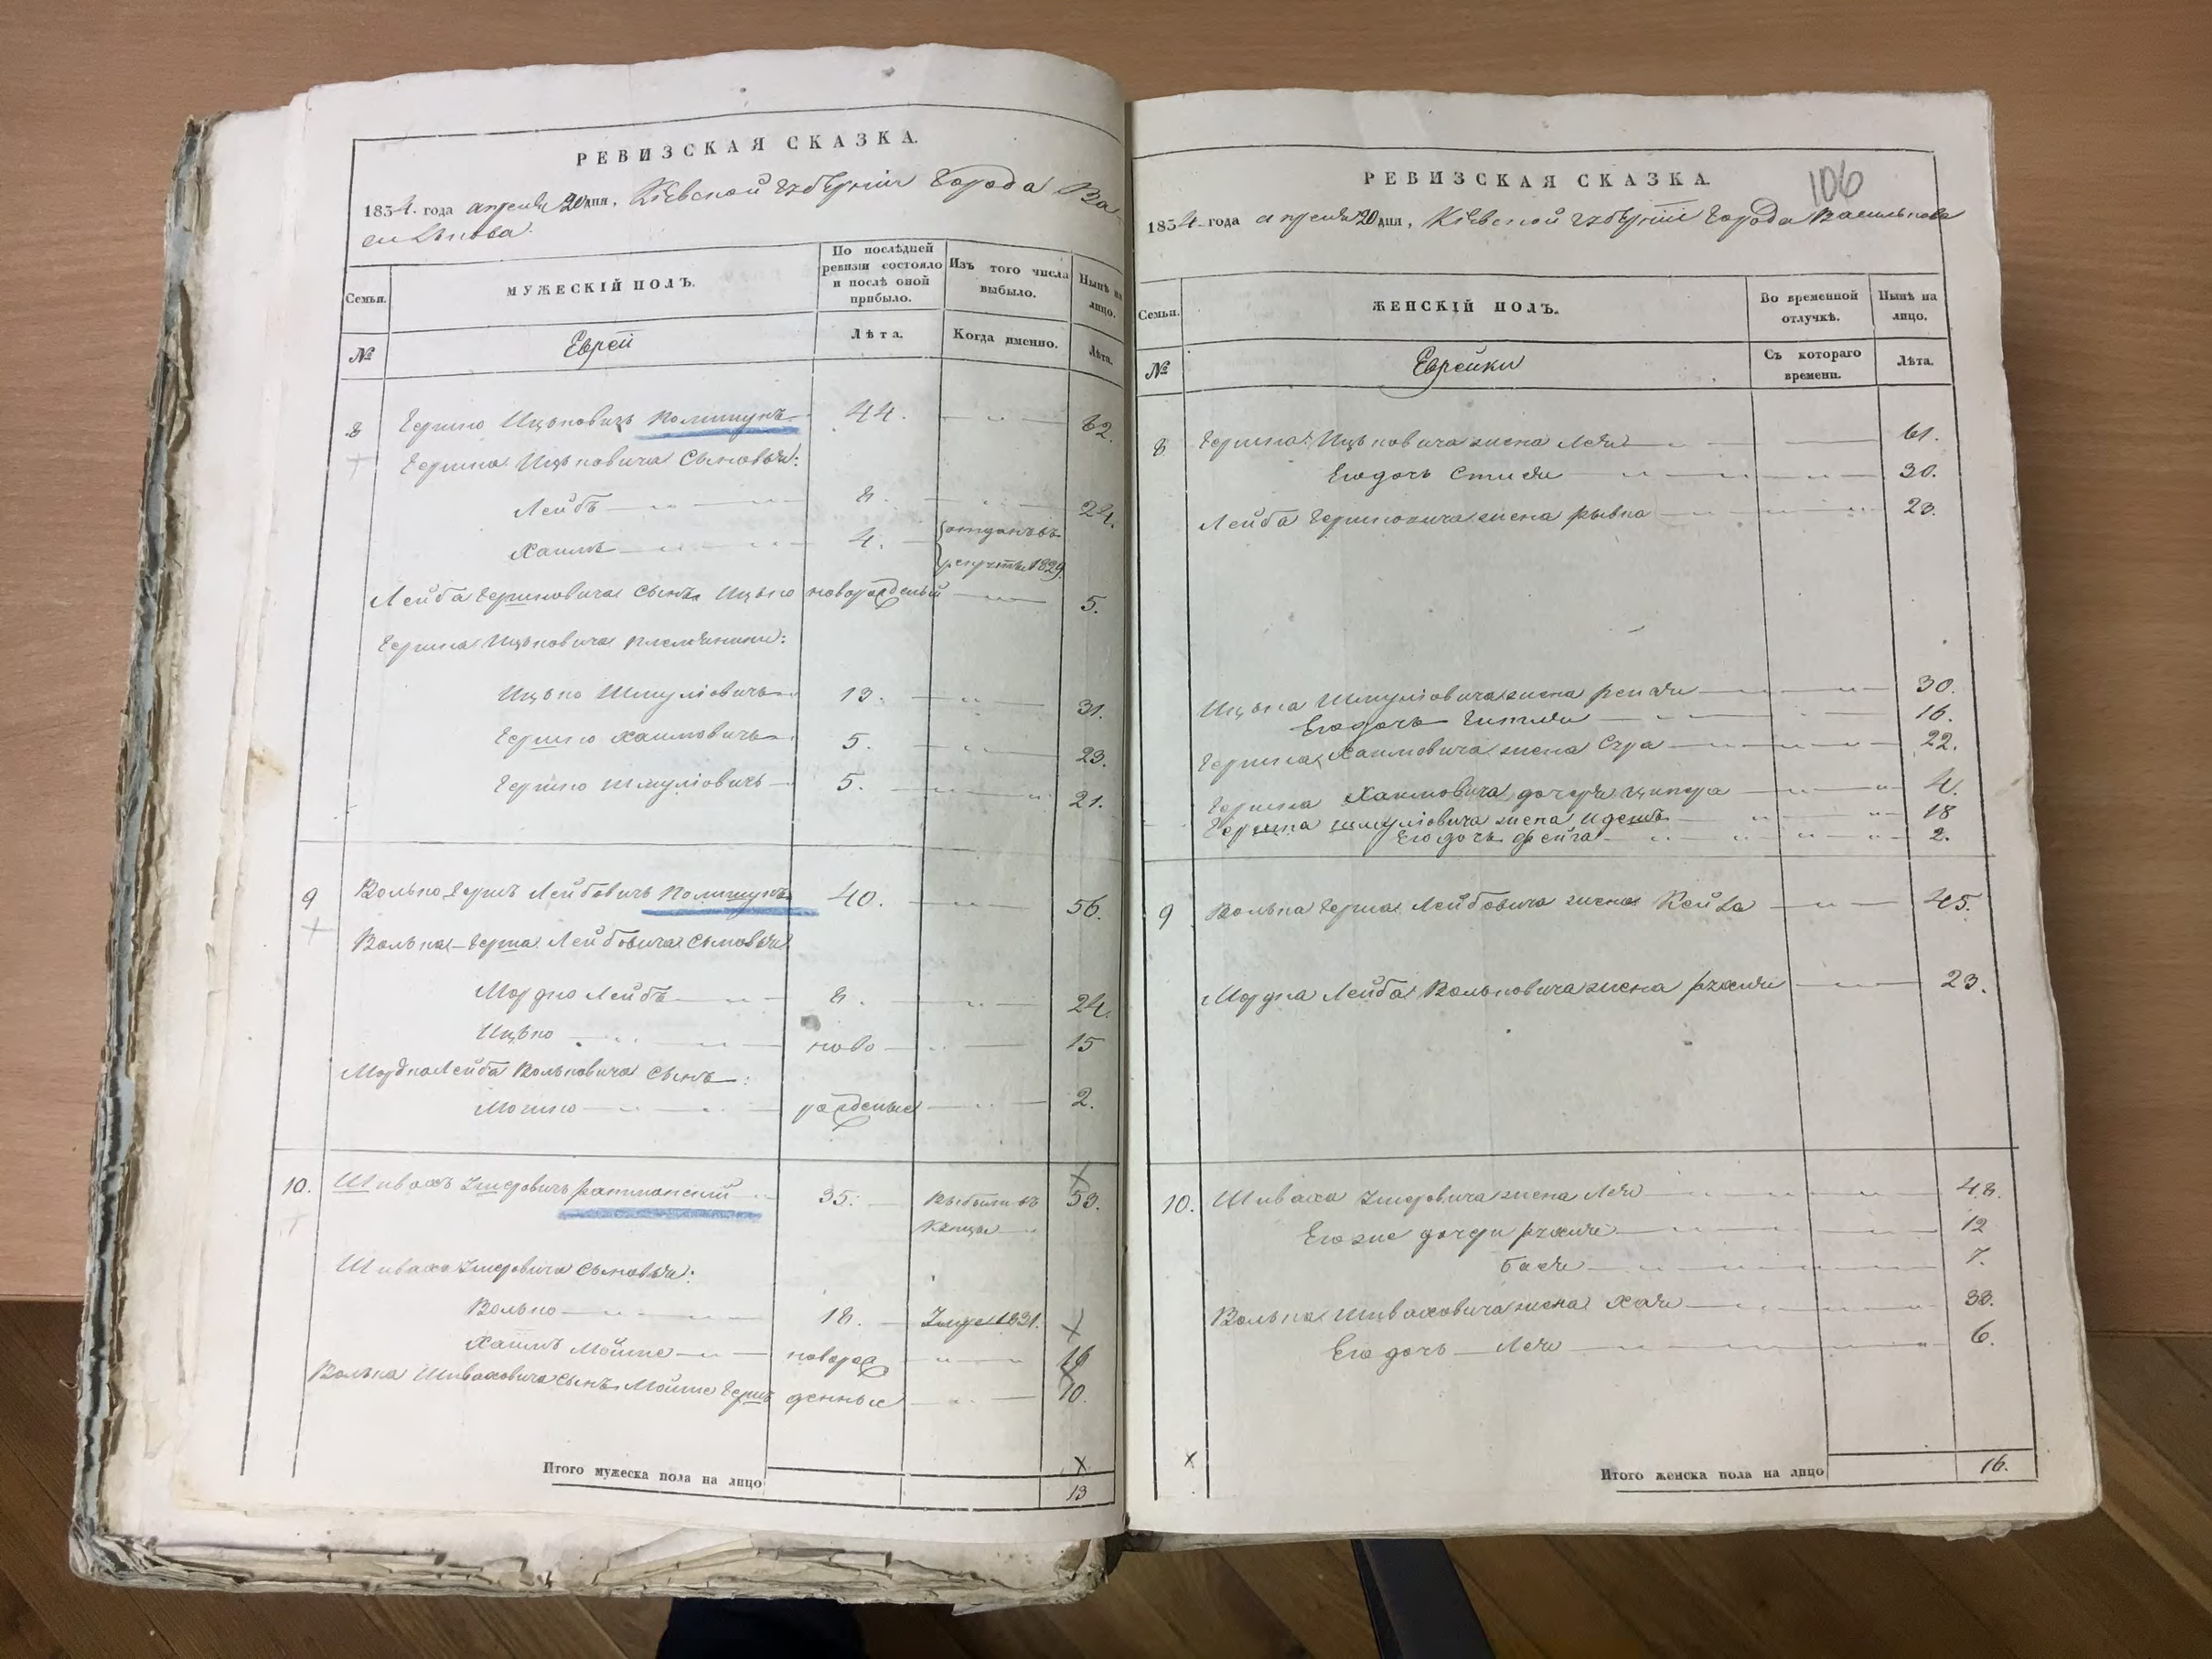 РЕВИЗСКАЯ СКАЗКА.
1854. года апреля 20 дня, Кіевской губерніи города Ва-
силькова.
Семьи. МУЖЕСКІЙ ПОЛЪ. По послѣдней ревизіи состояло и послѣ оной прибыло. Изъ того числа выбыло. Нынѣ на лицо.
№ Еврей Лѣта. Когда именно. Лѣта.
8 Гершко Ицьковичъ Полищукъ 44. 62.
Гершка Ицьковича сыновья:
Лейбъ 8. 24.
Хаимъ 4. отданъ въ
рекруты 1829
Лейба Гершковича сынъ Ицько новорожденый 5.
Гершка Ицьковича племянники:
Ицько Шмуліовичъ 13. 31.
Гершко Хаимовичъ 5. 23.
Гершко Шмуліовичъ 5. 21.
9 Волько Гершъ Лейбовичъ Полищукъ 40. 56.
Волька-Герша Лейбовича сыновья
Мордко Лейбъ 8. 24.
Ицько ново 15
Мордка Лейба Вольковича сынъ:
Мошко рожденые 2.
10. Шивахъ 35. 53.
Шиваха сыновья:
Волько 18. 1831.
Хаимъ Мойше новорож 16
Волька Шиваховича сынъ Мойше Гершъ денные 10.
Итого мужеска пола на лицо 13
РЕВИЗСКАЯ СКАЗКА.
106
1854 года апреля 20 дня, Кіевской губерніи города Василькова
Семьи. ЖЕНСКІЙ ПОЛЪ. Во временной отлучкѣ. Нынѣ на лицо.
№ Еврейки Съ котораго времени. Лѣта.
8 Гершка Ицьковича жена Лея 61.
Его дочь 30.
Лейба Гершковича жена Рывка 23.
Ицька Шмуліовича жена 30.
Его дочь Гитля 16.
Гершка Хаимовича жена Сура 22.
Гершка Хаимовича дочеря Ципора 4.
Гершка Шмуліовича жена 18
Его дочь Фейга 2.
9 Волька Герша Лейбовича жена Кейла 45.
Мордка Лейба Вольковича жена Рухля 23.
10. Шиваха жена Лея 48.
Его же дочери Рухля 12
Бася 7.
Волька Шиваховича жена Хая 38.
Его дочь Лея 6.
Итого женска пола на лицо 16.